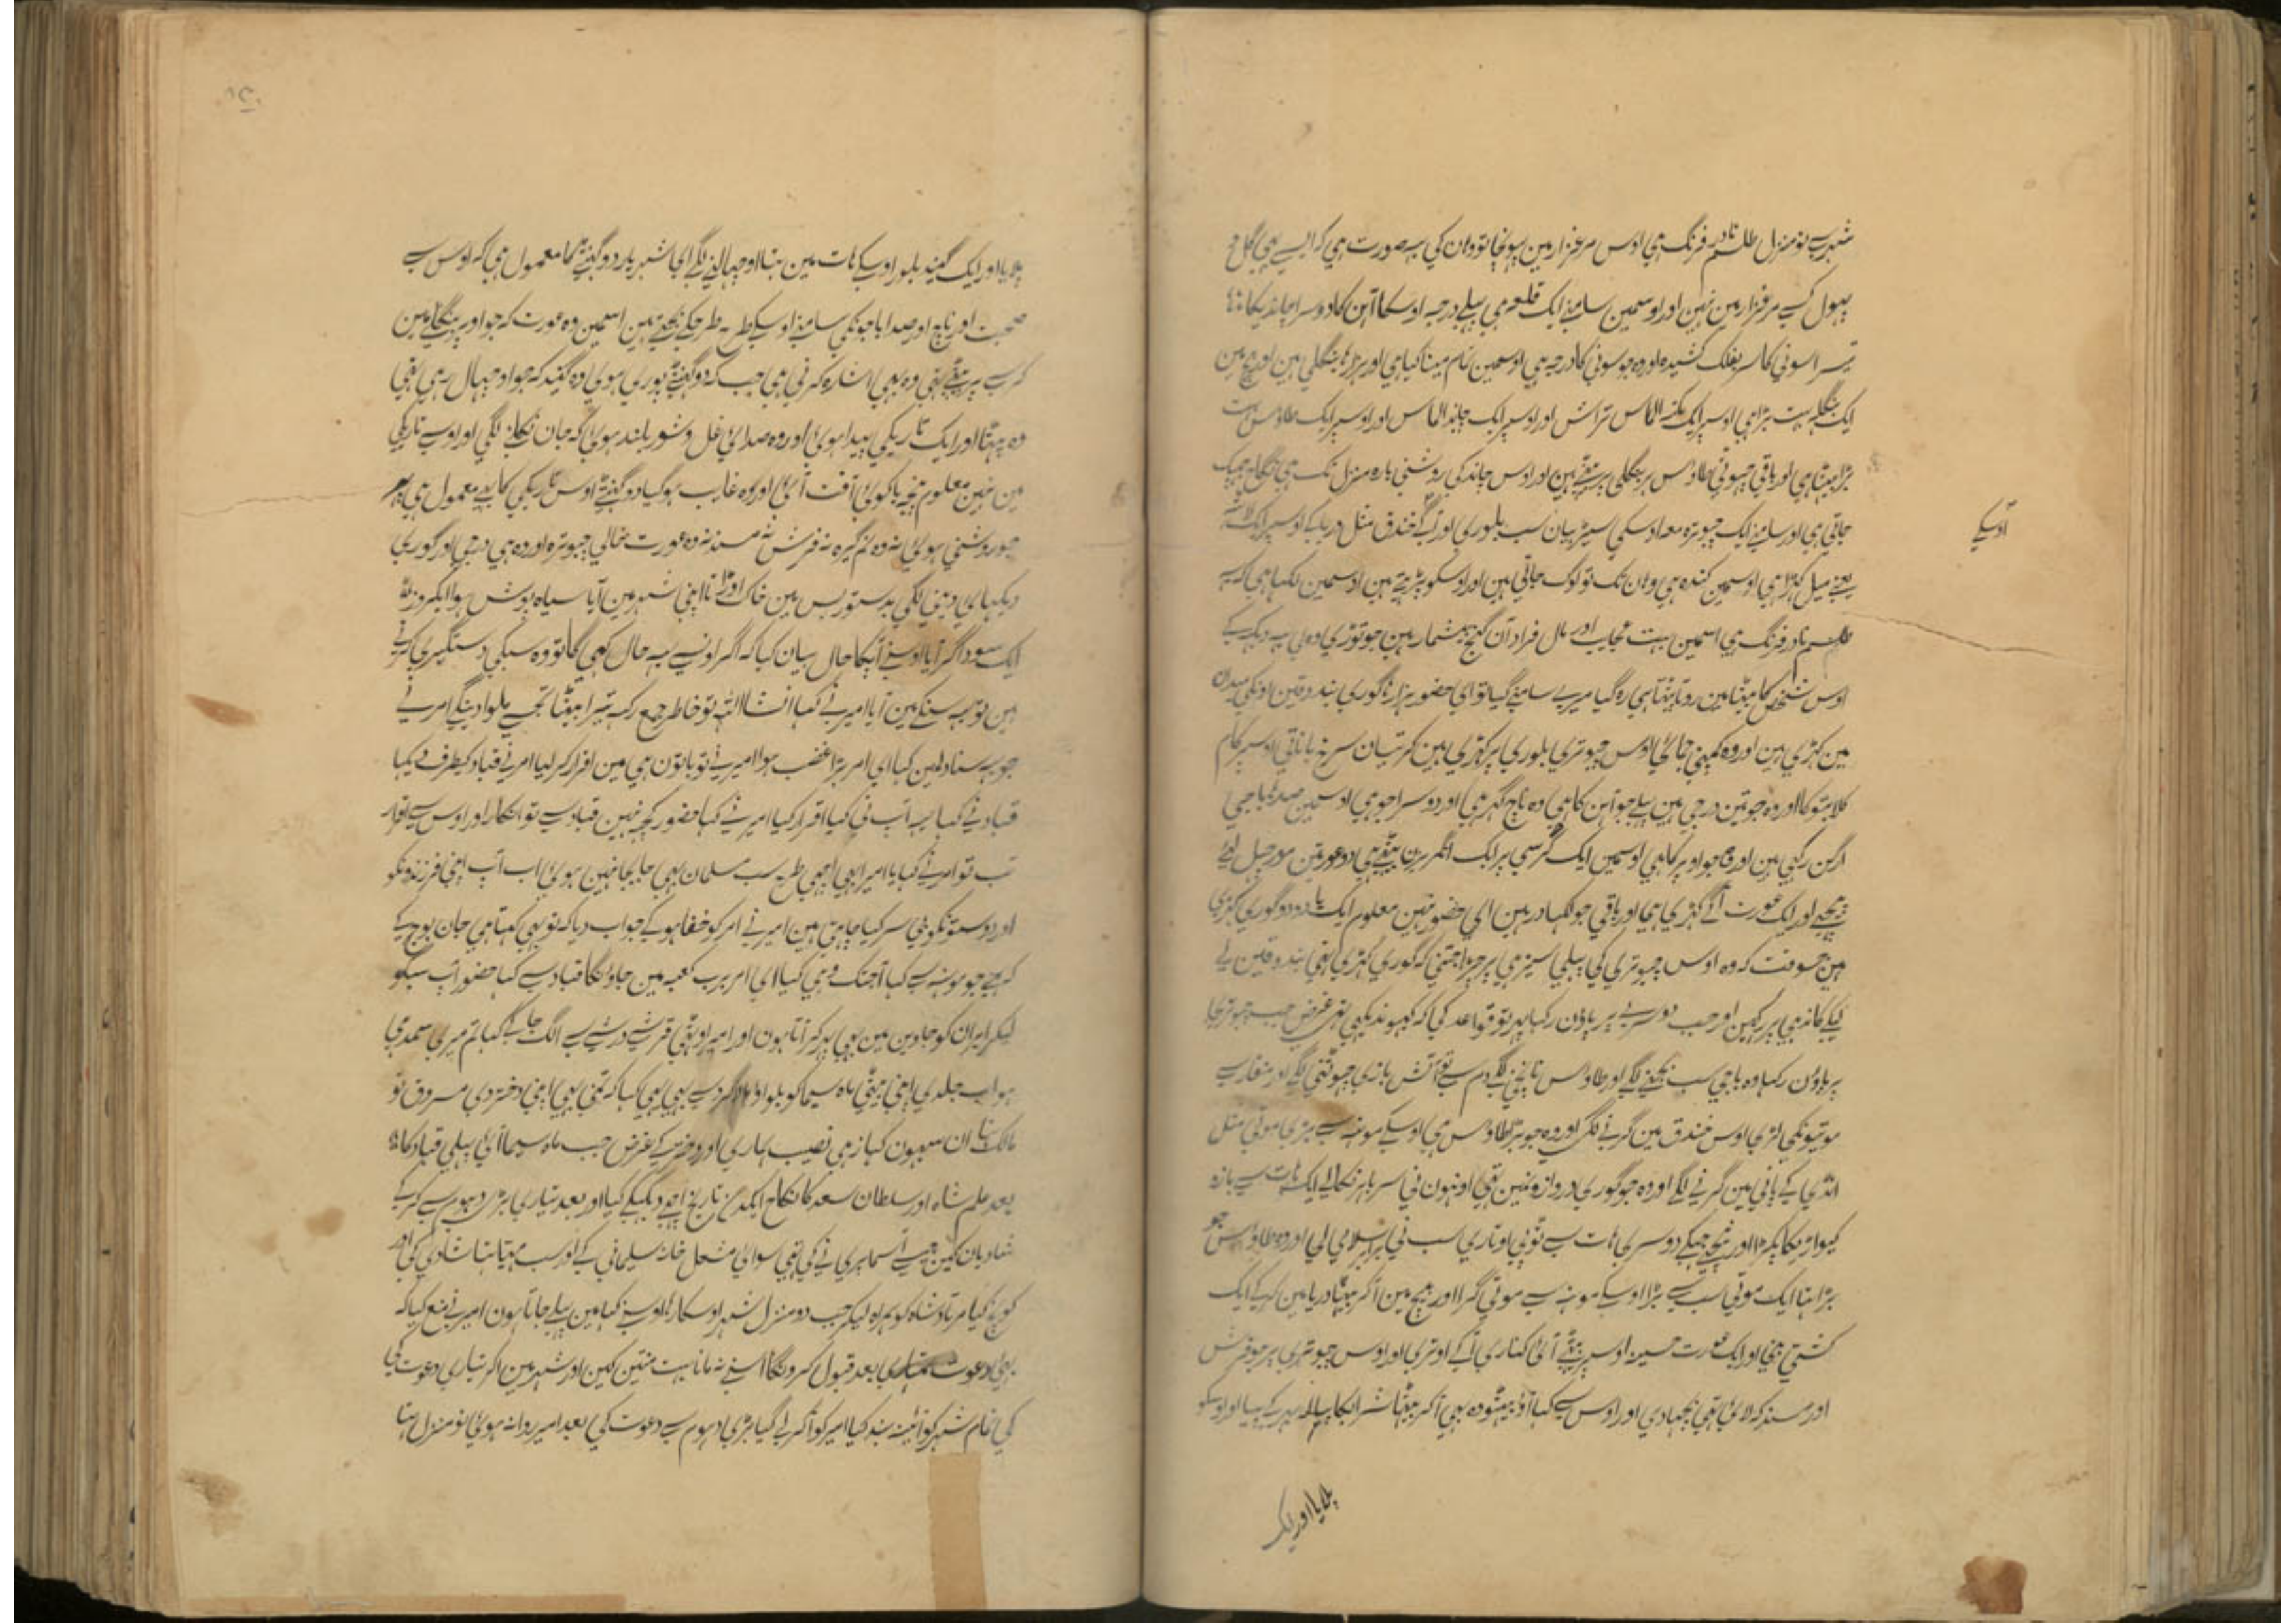 شہر سے نو منزل طلسم نادر فرنگ ہی اوس مرغزار مین پہونچا تو وان کی یہ صورت ہی کہ ایسے ہی گل و
پہول کسے مرغزار مین نہین اور اوسمین سامنے ایک قلعہ ہی پہلے درجہ اوسکا آہن کا دوسرا چاندیکا
تیسرا سونی کا سر بفلک کشیدہ اور وہ جو سونی کا درجہ ہی اوسمین تمام مینا کیا ہی اور ہزارہا بنگلی ہین اور بیچ مین
ایک بنگلہ بہت بڑا ہی اوسپر ایک الماس تراش اور اوسپر ایک چاند الماس اور اوسپر ایک طاوس بہت
بڑا بیٹہا ہی اور باقی چہوٹی طاوس ہر بنگلی پر بیٹہے ہین اور اوس چاند کی روشنی بارہ منزل تک ہی نگاہ جہپک
جاتی ہی اور سامنے ایک چبوترہ معہ اوسکی سیڑہیان سب بلوری اور آگے خندق مثل دریا کے اوسپر ایک لاٹہہ
یعنے میل کہڑا ہی اوسمین کندہ ہی وہان تک تو لوگ جاتی ہین اور اوسکو پڑہتے ہین اوسمین لکہا ہی کہ یہ
اوسکے
طلسم نادر فرنگ ہی اسمین بہت عجایب اور مال فراوان گنج بیشمار ہین جو توڑی وہ لی یہ دیکہہ کے
اوس شخص کا بیٹا مین روتا پیٹتا ہی رہ گیا میرے سامنے گیا تو ای حضور ہزارہا گوری بندوقین اونکی میدان
مین کہڑی ہین اور وہ کمپنی جائی اوس چبوتری بلوری پر کہڑی ہین کرتیان سرخ باناتی اوسپر کام
کلابتو کا اور وہ جو تین درجی ہین پہلے جو آہن کا ہی وہ ناچ گہر ہی اور دوسرا جو ہی اوسمین صدہا باجی
ارگن رکہی ہین اور جو اوپر کا ہی اوسمین ایک کرسی پر ایک انگریزن بیٹہے ہی دو عورتین مورچہل لیے
پیچہے اور ایک عورت آگے کہڑی ہی اور باقی جو لکہا در ہین ای حضور نہین معلوم ایک یا دو دو گوری کہڑی
ہین جسوقت کہ وہ اوس چبوتری کی پہلی سیڑہی پر چڑہا جتنی کہ گوری کہڑی تہی بندوقین لے
لیکے کاندہی پر رکہین اور جب دوسرے پر پاؤن رکہا پہر تو قواعد کی کہ کبہو ندیکہی تہی غرض جب چبوتریکا
پر پاؤن رکہا وہ باجی سب بجنے لگے اور طاوس ناچنی لگے دم سے تو آتش بازی چہوٹنی لگے اور منقار سے
موتیونکی لڑی اوس خندق مین گرنے لگی اور وہ جو بڑا طاوس ہی اوسکے مونہہ سے بڑی موتی مثل
انڈی کے پانی مین گرنے لگے اور وہ جو گوری دروازونمین تہی اونہون نی سر باہر نکالے ایک ہات سے بازہ
کیواڑیکا پکڑا اور نیچے جہکے دوسری ہات سے ٹوپی اوتاری سب نی برابر سلامی لی اور وہ طاوس جو
بڑا تہا ایک موتی سب سے بڑا اوسکے مونہہ سے موتی گرا اور بیچ مین آکر بیٹہا دریا مین گر کے ایک
کشتی بنی اور ایک عورت حسینہ اوسپر بیٹہے آئی کناری آکے اوتری اور اوس چبوتری پر جو فرش
اور مسند کہ لائی تہی بچہا دی اور اوس سے کہا آؤ بیٹہو وہ بہی آکر بیٹہا شراب کا پیالہ بہر کے پیا اور اوسکو
پلایا اور ایک
پلایا اور ایک گیند بلور اوسکے ہات مین تہا اوچہالنے لگے ای شہریار دو گہنٹے کا معمول ہی کہ اوس سے
صحبت اور ناچ اور صدہا باجونکی سامنے اوسکے طرح بطرحکے بجتے ہین اسمین وہ عورت کہ جو اوپر بنگلے مین
کرسے پر بیٹہے تہی وہ بہی اشارہ کرتی ہی جب کہ دو گہنٹے پوری ہوی وہ گیند کہ جو اوچہال رہی تہی
وہ پہٹا اور ایک تاریکی پیدا ہوی اور وہ صدائی غل و شور بلند ہوئی کہ جان نکلنے لگی اور اوسے تاریکی
مین نہین معلوم پنجہ یا کوئی آفت آئی اور وہ غایب ہو گیا دو گہنٹے اوس تاریکی کا یہے معمول ہی پہر
جو روشنی ہوئی نہ وہ نمگیرہ نہ فرش نہ مسند نہ وہ عورت خالی چبوترہ اور وہ ہی درجی اور گوری
دیکہائی دینی لگی بدستور بس مین خاک اوڑاتا اپنی شہر مین آیا سیاہ پوش ہوا ایکروز
ایک سوداگر آیا اوسنے آپکا حال بیان کیا کہ اگر اونسے یہ حال کہی گا تو وہ سبکی دستگیری کرتے
ہین تو یہ سنکے مین آیا امیر نے کہا انشااللہ تو خاطر جمع رکہہ تیرا بیٹا تجہے ملوا دینگے امر نے
جو یہ سنا دلمین کہا ای امر بڑا غضب ہوا امیر نے تو باتون ہی مین اقرار کر لیا امر نے قباد کیطرف دیکہا
قباد نے کہا یہ آپ نی کیا اقرار کیا امیر نے کہا حضور کچہہ نہین قباد سے تو انکار اور اوس سے اقرار
تب تو امر نے کہا یا امیر ابہی اچہی طرح سب مسلمان بہی جابجا نہین ہوئی اب آپ اپنی فرزندونکو
اور دوستونکو بی سر کیا چاہتی ہین امیر نے امر کو خفا ہو کے جواب دیا کہ تو بہی کہتا ہی جان بوج کے
کہئے جو مونہہ سے کہا آجتک وہی کیا ای امر برب کعبہ مین جاؤنگا قباد سے کہا حضور آپ سبکو
لیکر ایران کو جاوین مین بہی پہر کر آتا ہون اور امیر اوٹہی قریشے درشے سے الگ جا کے کہا تم میری سمدہی
ہو اب جلدی اپنی بیٹی ماہ سیما کو بلواؤ اور سے بہی یہی کہا کہ تمنی بہی اپنی دختر دی مسروق تو
مالک تہا ان سبہون کہا زہی نصیب ہماری اور وغیرہ کے غرض جب ماہ سیما آئی پہلی قباد کا
بعد علم شاہ اور سلطان سعد کا نکاح ایکدن تاریخ اچہے دیکہکے کیا اور بعد تیاری بڑی دہوم سے کر کے
شادیان کین جیسے آسما پری نے کی تہی سوائی مشعل خانہ سلیمانی کے اور سب مہیا تہا شادی کی اور
کوچ کیا مرتاد شاہ کو ہمراہ لیکر جب دو منزل شہر اوسکا رہا اوسنے کہا مین پہلے جاتا ہون امیر نے منع کیا کہ
بہائی دعوت تمہاری بعد قبول کرونگا اسنے نہ مانا بہت منتین کین اور شہر مین آکر تیاری دعوت کی
کی تمام شہر کو آئینہ بند کیا امیر کو آکر لے گیا بڑی دہوم سے دعوت کی بعد امیر روانہ ہوئی نو منزل تہا